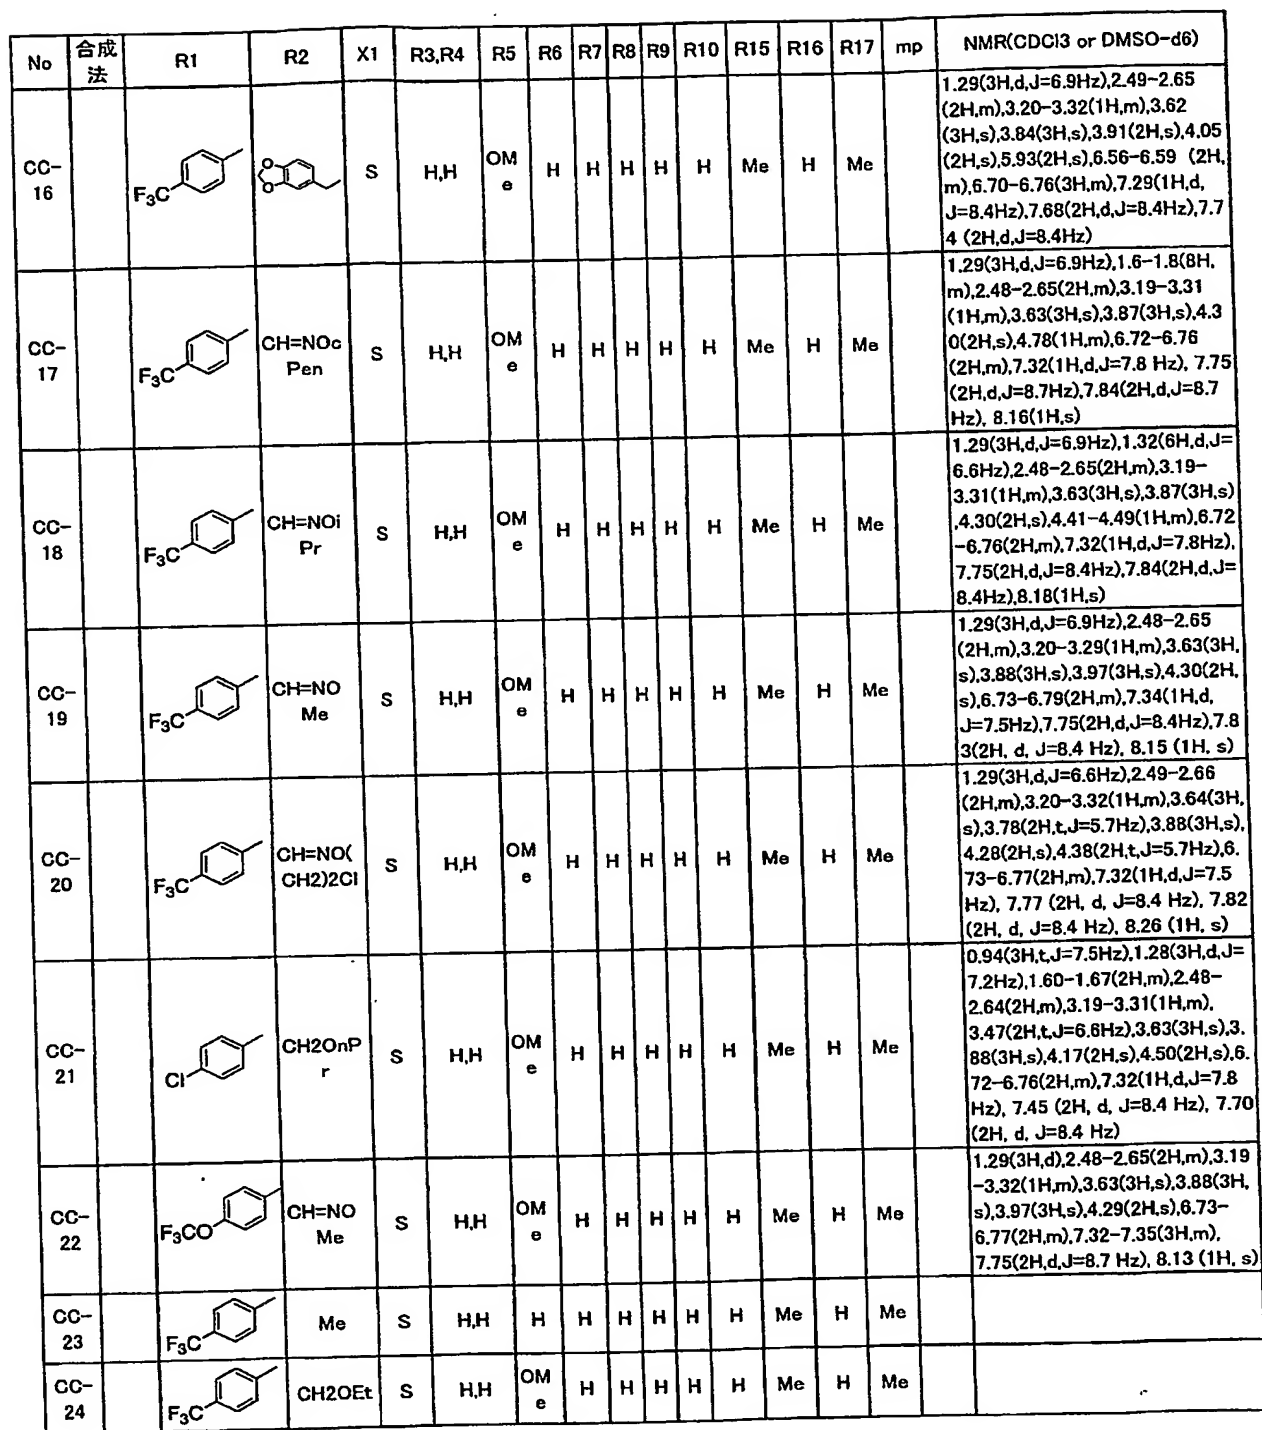 No 合成法 R1 R2 X1 R3,R4 R5 R6 R7 R8 R9 R10 R15 R16 R17 mp NMR(CDCl3 or DMSO-d6)
CC-16 F3C O O S H,H OMe H H H H H Me H Me
1.29(3H,d,J=6.9Hz),2.49-2.65
(2H,m),3.20-3.32(1H,m),3.62
(3H,s),3.84(3H,s),3.91(2H,s),4.05
(2H,s),5.93(2H,s),6.56-6.59 (2H,
m),6.70-6.76(3H,m),7.29(1H,d,
J=8.4Hz),7.68(2H,d,J=8.4Hz),7.7
4 (2H,d,J=8.4Hz)
CC-17 F3C CH=NOcPen S H,H OMe H H H H H Me H Me
1.29(3H,d,J=6.9Hz),1.6-1.8(8H,
m),2.48-2.65(2H,m),3.19-3.31
(1H,m),3.63(3H,s),3.87(3H,s),4.3
0(2H,s),4.78(1H,m),6.72-6.76
(2H,m),7.32(1H,d,J=7.8 Hz), 7.75
(2H,d,J=8.7Hz),7.84(2H,d,J=8.7
Hz), 8.16(1H,s)
CC-18 F3C CH=NOiPr S H,H OMe H H H H H Me H Me
1.29(3H,d,J=6.9Hz),1.32(6H,d,J=
6.6Hz),2.48-2.65(2H,m),3.19-
3.31(1H,m),3.63(3H,s),3.87(3H,s)
,4.30(2H,s),4.41-4.49(1H,m),6.72
-6.76(2H,m),7.32(1H,d,J=7.8Hz),
7.75(2H,d,J=8.4Hz),7.84(2H,d,J=
8.4Hz),8.18(1H,s)
CC-19 F3C CH=NOMe S H,H OMe H H H H H Me H Me
1.29(3H,d,J=6.9Hz),2.48-2.65
(2H,m),3.20-3.29(1H,m),3.63(3H,
s),3.88(3H,s),3.97(3H,s),4.30(2H,
s),6.73-6.79(2H,m),7.34(1H,d,
J=7.5Hz),7.75(2H,d,J=8.4Hz),7.8
3(2H, d, J=8.4 Hz), 8.15 (1H, s)
CC-20 F3C CH=NO(CH2)2Cl S H,H OMe H H H H H Me H Me
1.29(3H,d,J=6.6Hz),2.49-2.66
(2H,m),3.20-3.32(1H,m),3.64(3H,
s),3.78(2H,t,J=5.7Hz),3.88(3H,s),
4.28(2H,s),4.38(2H,t,J=5.7Hz),6.
73-6.77(2H,m),7.32(1H,d,J=7.5
Hz), 7.77 (2H, d, J=8.4 Hz), 7.82
(2H, d, J=8.4 Hz), 8.26 (1H, s)
CC-21 Cl CH2OnPr S H,H OMe H H H H H Me H Me
0.94(3H,t,J=7.5Hz),1.28(3H,d,J=
7.2Hz),1.60-1.67(2H,m),2.48-
2.64(2H,m),3.19-3.31(1H,m),
3.47(2H,t,J=6.6Hz),3.63(3H,s),3.
88(3H,s),4.17(2H,s),4.50(2H,s),6.
72-6.76(2H,m),7.32(1H,d,J=7.8
Hz), 7.45 (2H, d, J=8.4 Hz), 7.70
(2H, d, J=8.4 Hz)
CC-22 F3CO CH=NOMe S H,H OMe H H H H H Me H Me
1.29(3H,d),2.48-2.65(2H,m),3.19
-3.32(1H,m),3.63(3H,s),3.88(3H,
s),3.97(3H,s),4.29(2H,s),6.73-
6.77(2H,m),7.32-7.35(3H,m),
7.75(2H,d,J=8.7 Hz), 8.13 (1H, s)
CC-23 F3C Me S H,H H H H H H H Me H Me
CC-24 F3C CH2OEt S H,H OMe H H H H H Me H Me